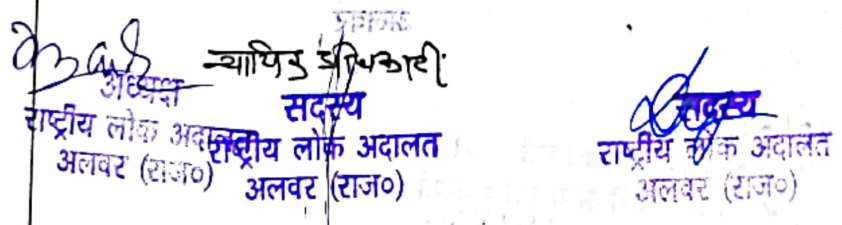 न्यायिक अधिकारी
अध्यक्ष
राष्ट्रीय लोक अदालत
अलवर (राज०)
सदस्य
राष्ट्रीय लोक अदालत
अलवर (राज०)
सदस्य
राष्ट्रीय लोक अदालत
अलवर (राज०)